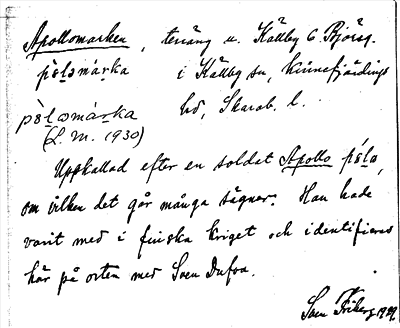 Apollomarken, teräng u. Källby C Björsg.
pòlomárka i Källby sn, Kinnefjärdings
pòlomárka hd, Skarab. l.
(L. M. 1930)
Uppkallad efter en soldat Apollo pólo,
om vilken det går många sägner. Han hade
varit med i finska kriget och identifieras
här på orten med Sven Dufva.
Sven Friberg